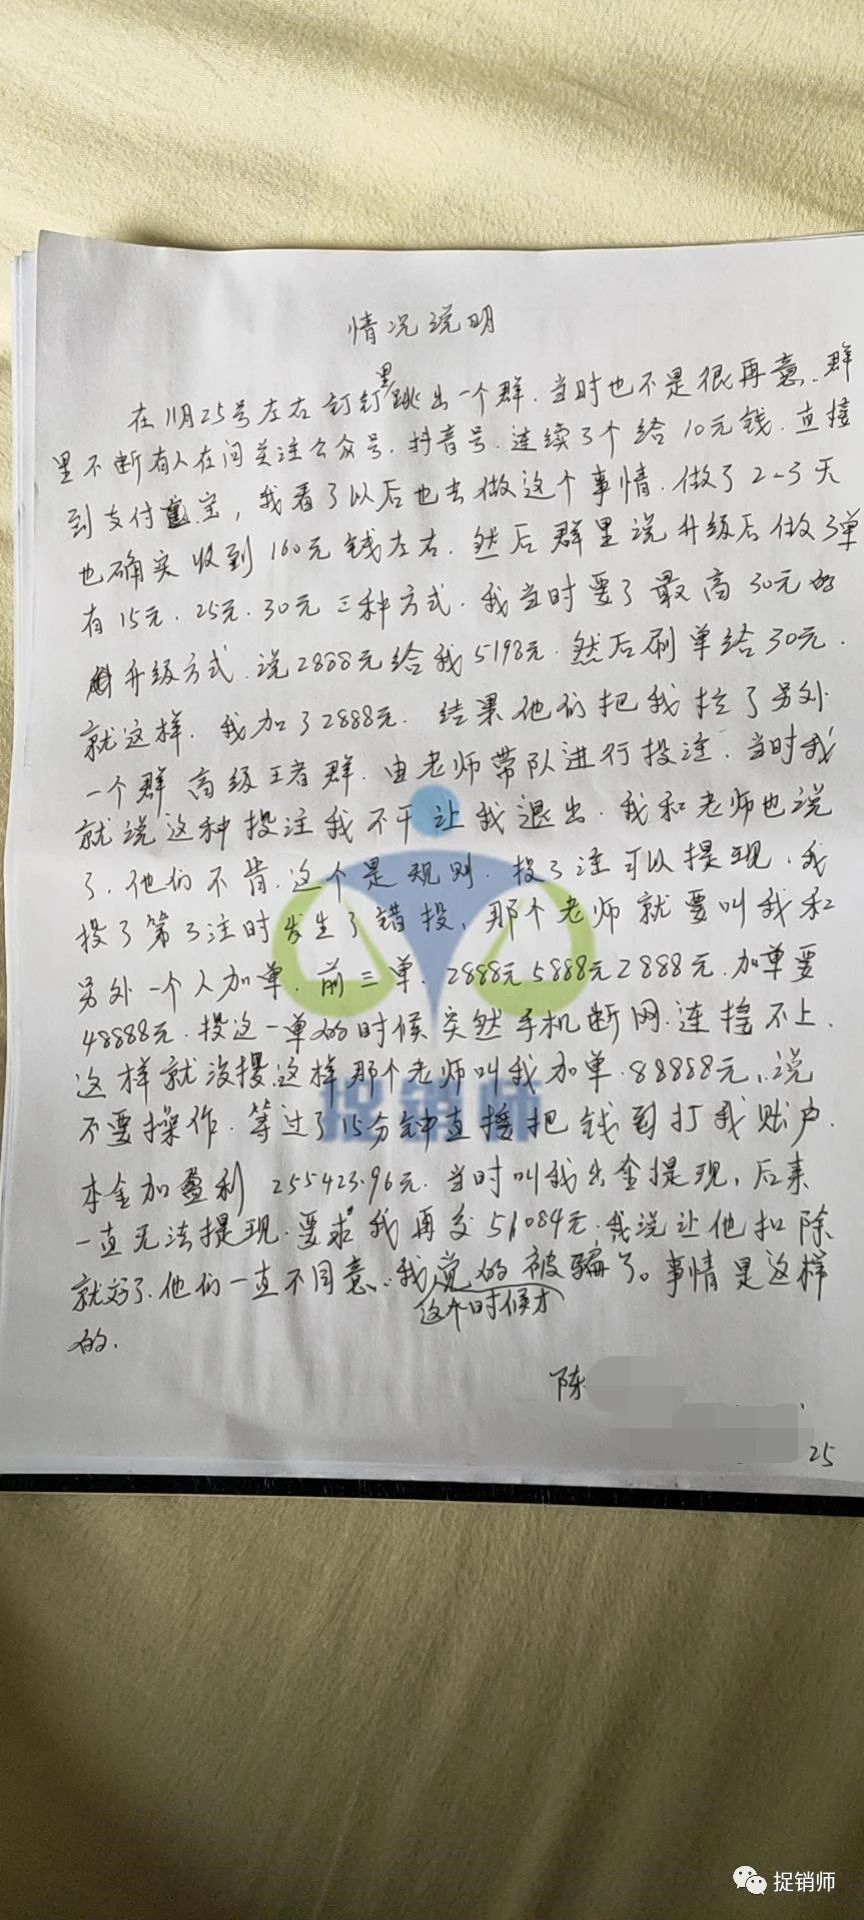 情况说明
在11月25号左右钉钉里跳出一个群.当时也不是很再意.群
里不断有人在问关注公众号.抖音号.连续3个给10元钱.直接
到支付宝，我看了以后也去做这个事情.做了2-3天
也确实收到160元钱左右.然后群里说升级后做3单
有15元.25元.30元三种方式.我当时要了最高30元的
升级方式.说2888元给我5198元.然后刷单给30元.
就这样.我加了2888元.结果他们把我拉了另外
一个群高级王者群.由老师带队进行投注.当时我
就说这种投注我不干让我退出.我和老师也说
了.他们不肯.这个是规则.投3注可以提现.我
投了第3注时发生了错投，那个老师就要叫我和
另外一个人加单.前三单.2888元5888元2888元.加单要
48888元.投这一单的时候突然手机断网.连接不上.
这样就没提.这样那个老师叫我加单.88888元，说
不要操作.等过了15分钟直接把钱到打我账户.
本金加盈利255423.96元.当时叫我出金提现，后来
一直无法提现.要求我再交51084元.我说让他扣除
就好了.他们一直不同意..我这个时候才觉的被骗了。事情是这样
的.
陈
25
捉销师
捉销师